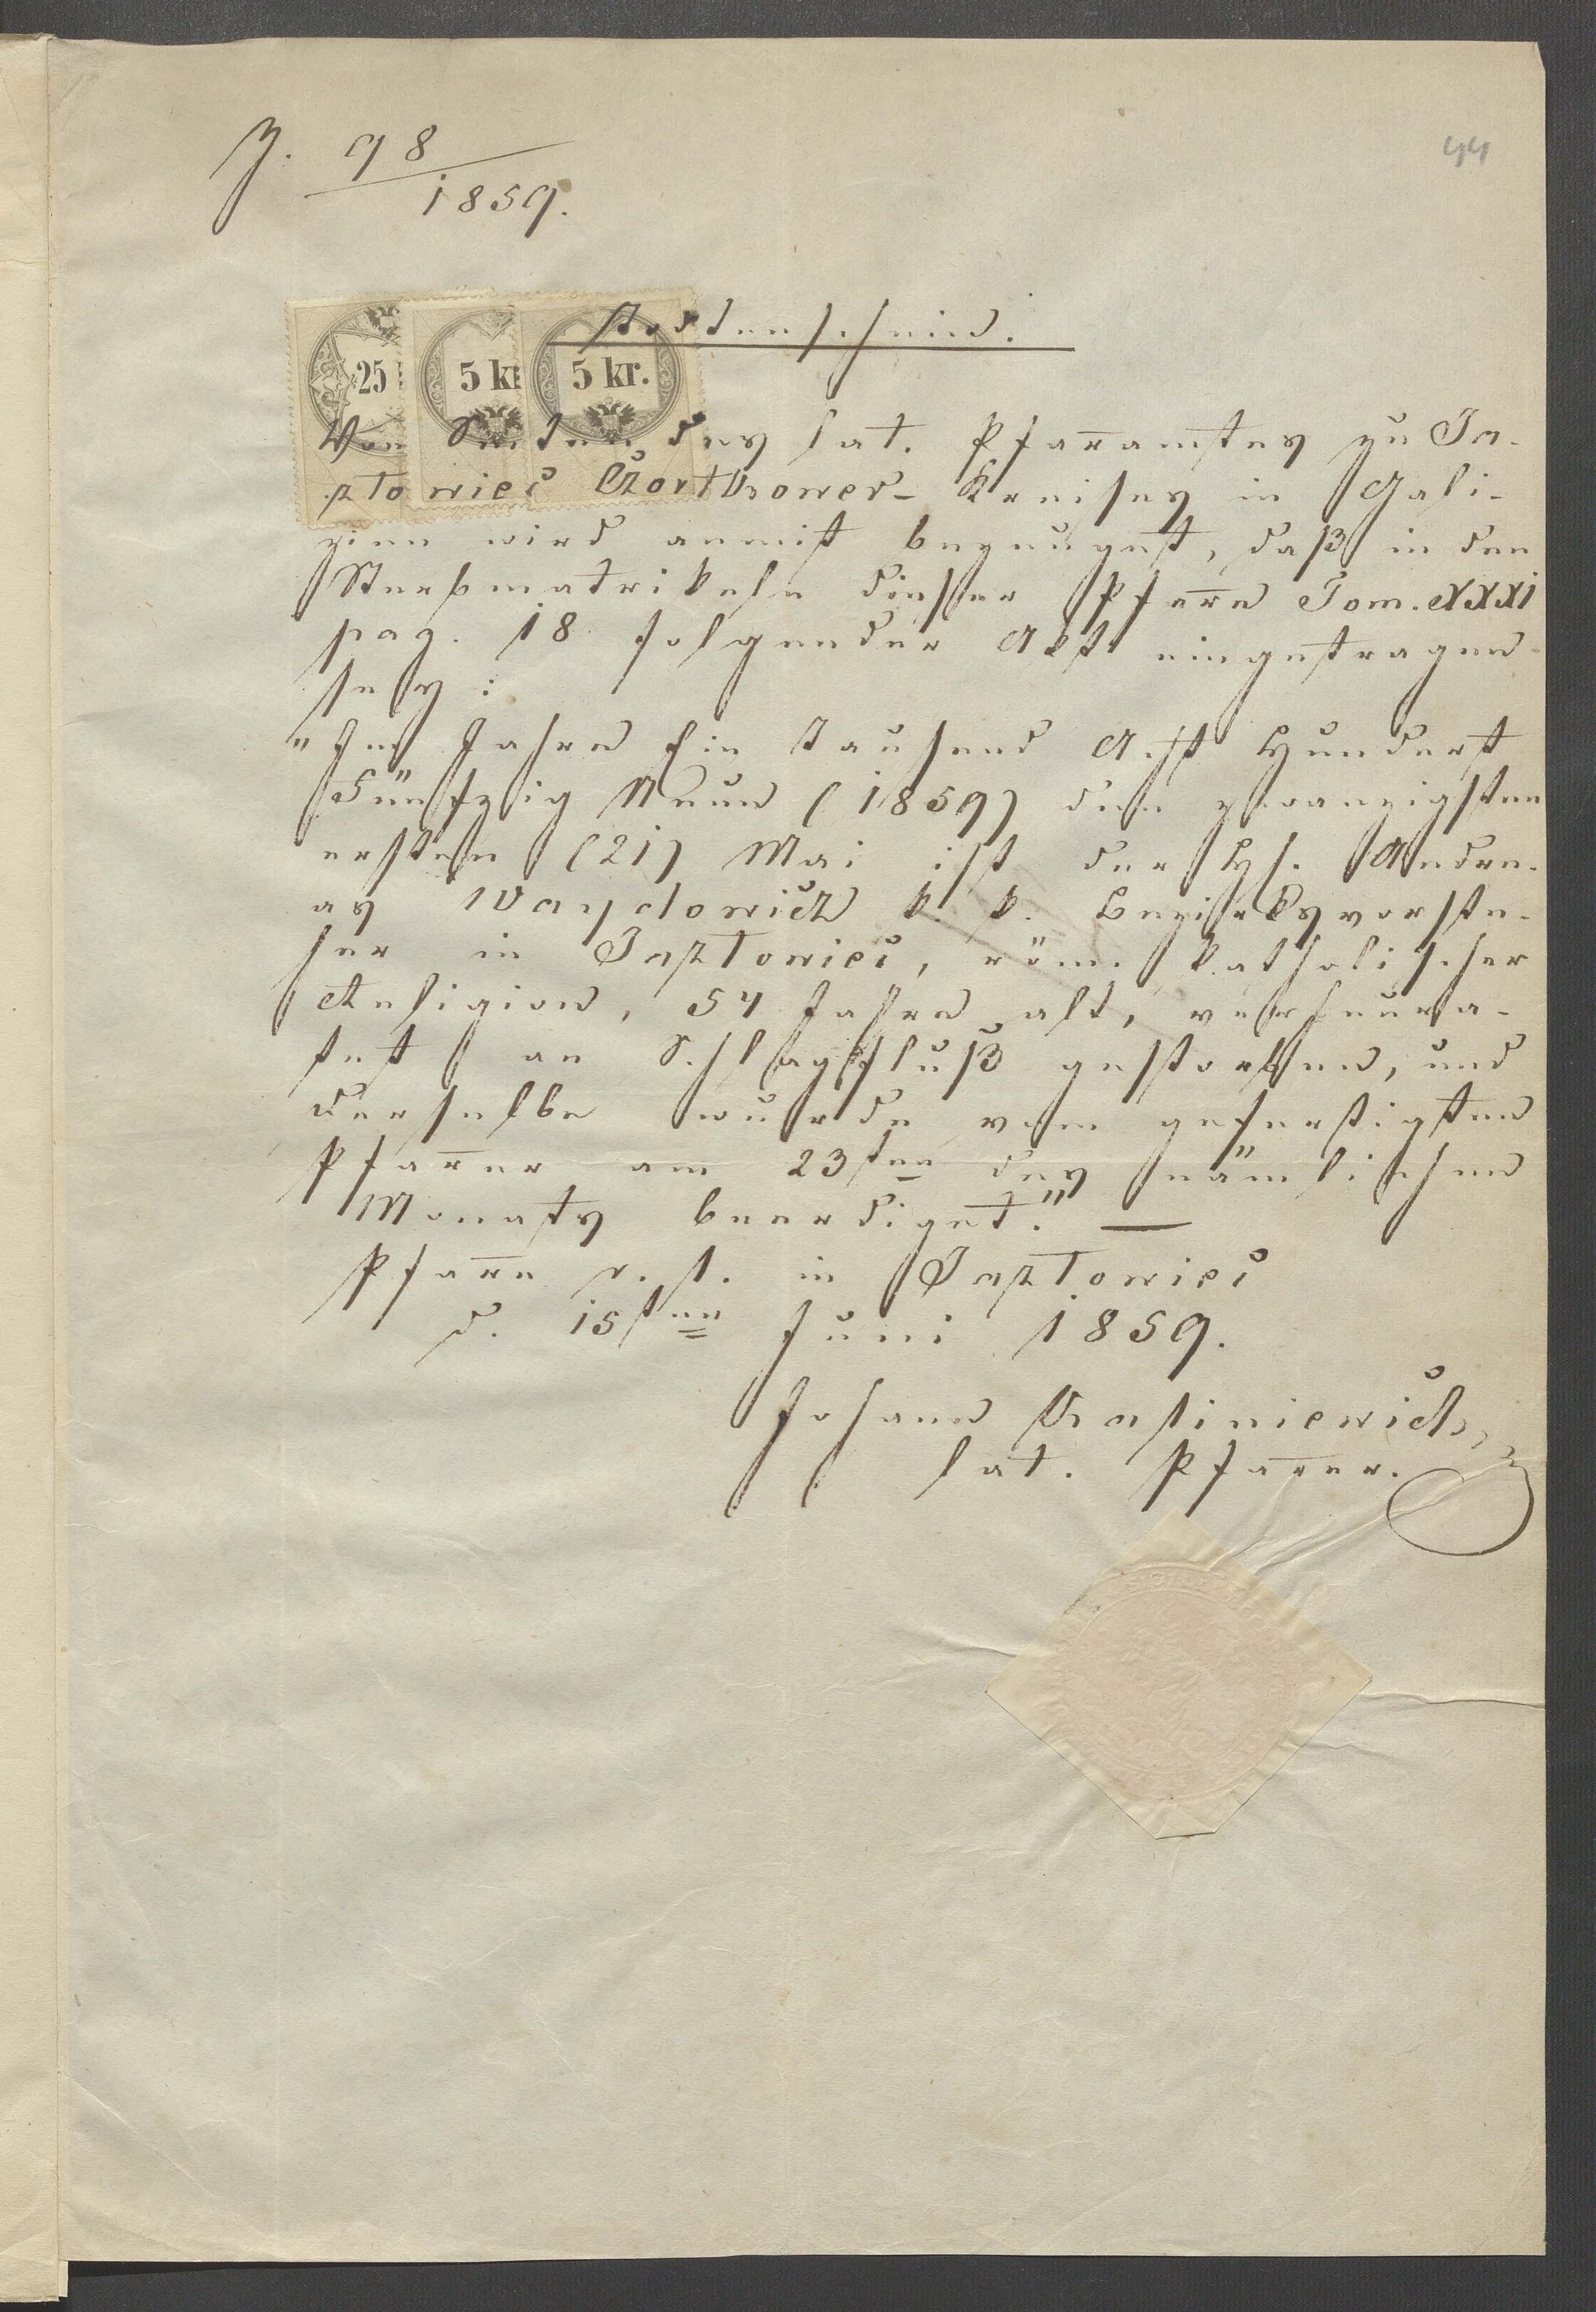 Z. 98
1859.
44
Todtenschein.
25
5 kr
5 kr.
Von Seiten des lat. Pfar̄amtes zu Ja-
złowiec Czortkower- Kreises in Gali-
zien wird anmit bezeuget, daß in den
Sterbmatrikeln dieser Pfar̄e Tom. XXXI
pag. 18 folgender Akt eingetragen
sey:
"Im Jahre Ein Tausend Acht Hundert
Fünfzig Neun (1859) den zwanzigsten
ersten (21) Mai ist der H. Andre-
as k. k. Bezirksvorste-
her in Jazłowiec, röm. katholischer
Religion, 54 Jahre alt, verheura-
tet an Schlagfluß gestorben, und
derselbe wurde vom gefertigten
Pfar̄er am 23ten des nämlichen
Monats beerdiget." —
Pfar̄e r. l. in Jazłowiec
d. 15ten Juni 1859.
Johann
lat. Pfar̄er.